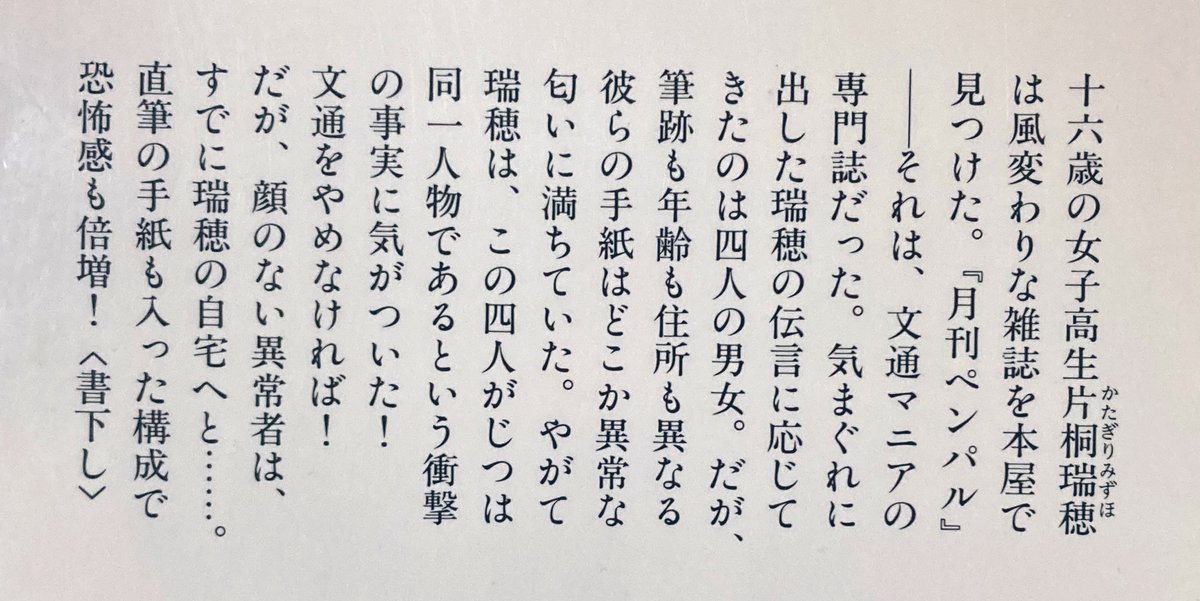 十六歳の女子高生片桐瑞穂
かたぎりみずほ
は風変わりな雑誌を本屋で
見つけた。『月刊ペンパル』
――それは、文通マニアの
専門誌だった。気まぐれに
出した瑞穂の伝言に応じて
きたのは四人の男女。だが、
筆跡も年齢も住所も異なる
彼らの手紙はどこか異常な
匂いに満ちていた。やがて
瑞穂は、この四人がじつは
同一人物であるという衝撃
の事実に気がついた！
文通をやめなければ！
だが、顔のない異常者は、
すでに瑞穂の自宅へと……。
直筆の手紙も入った構成で
恐怖感も倍増！〈書下し〉